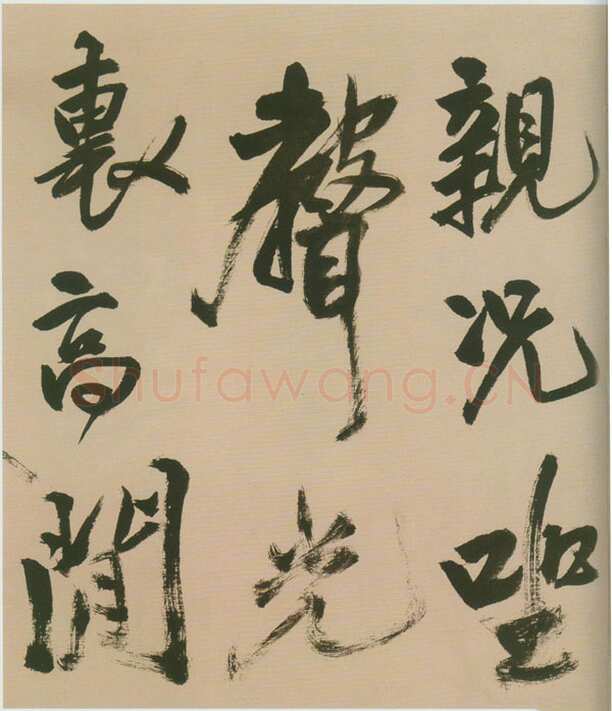 親况唑
聲光
裏高閒
Shufawang.CN